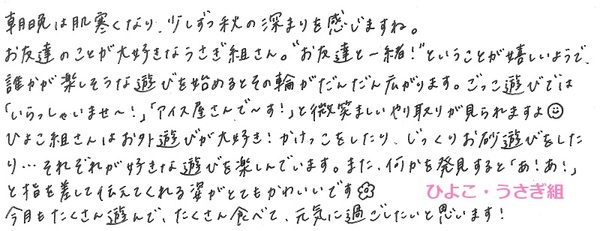 朝晩は肌寒くなり、少しずつ秋の深まりを感じますね。
お友達のことが大好きなうさぎ組さん。"お友達と一緒！"ということが嬉しいようで、
誰かが楽しそうな遊びを始めるとその輪がだんだん広がります。ごっこ遊びでは
「いらっしゃいませ〜！」「アイス屋さんで〜す！」と微笑ましいやり取りが見られますよ☺
ひよこ組さんはお外遊びが大好き！かけっこをしたり、じっくりお砂遊びをした
り…それぞれが好きな遊びを楽しんでいます。また、何かを発見すると「あ！あ！」
と指を差して伝えてくれる姿がとてもかわいいです
ひよこ・うさぎ組
今月もたくさん遊んで、たくさん食べて、元気に過ごしたいと思います！